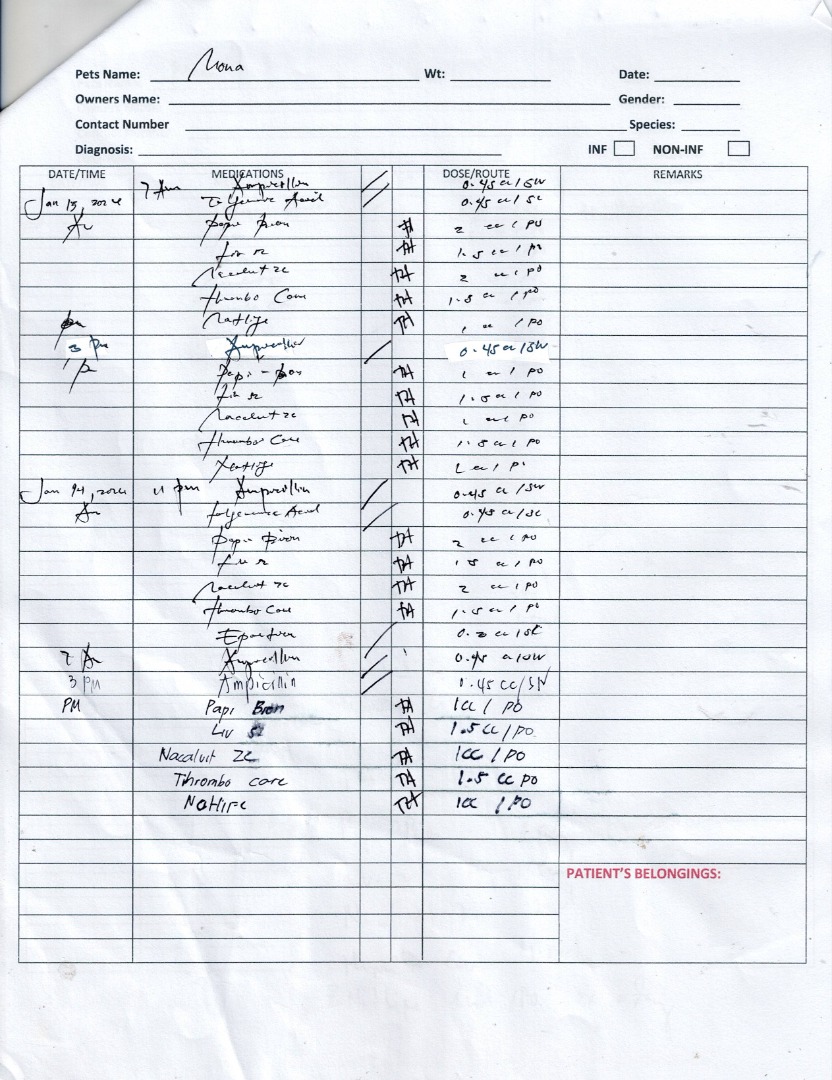 Pets Name: Mona Wt: Date:
Owners Name: Gender:
Contact Number Species:
Diagnosis: INF NON-INF
DATE/TIME MEDICATIONS DOSE/ROUTE REMARKS
7 Am Ampicillin 0.45 cc / SW
Jan 13, 2024 Acid 0.45 / SC
Am Papi Bion TH 2 cc / PO
Liv 52 TH 1.5 cc / PO
Nacalvit zc TH 2 cc / PO
Thrombo Care TH 1.5 cc / PO
pm TH 1 cc / PO
3 pm Ampicillin 0.45 cc / SW
Papi-Bion TH 1 cc / PO
Liv 52 TH 1.5 cc / PO
Nacalvit zc TH 1 cc / PO
Thrombo Care TH 1.5 cc / PO
TH 1 cc / PO
Jan 14, 2024 11 pm Ampicillin 0.45 cc / SW
Am Acid 0.45 cc / SC
Papi Bion TH 2 cc / PO
Liv 52 TH 1.5 cc / PO
Nacalvit zc TH 2 cc / PO
Thrombo Care TH 1.5 cc / PO
0.2 cc / SC
7 Am Ampicillin 0.45 cc / SW
3 PM Ampicillin 0.45 cc / SW
PM Papi Bion TH 1cc / PO
Liv 52 TH 1.5 cc / PO
Nacalvit ZC TH 1cc / PO
Thrombo care TH 1.5 cc PO
TH 1cc / PO
PATIENT'S BELONGINGS: